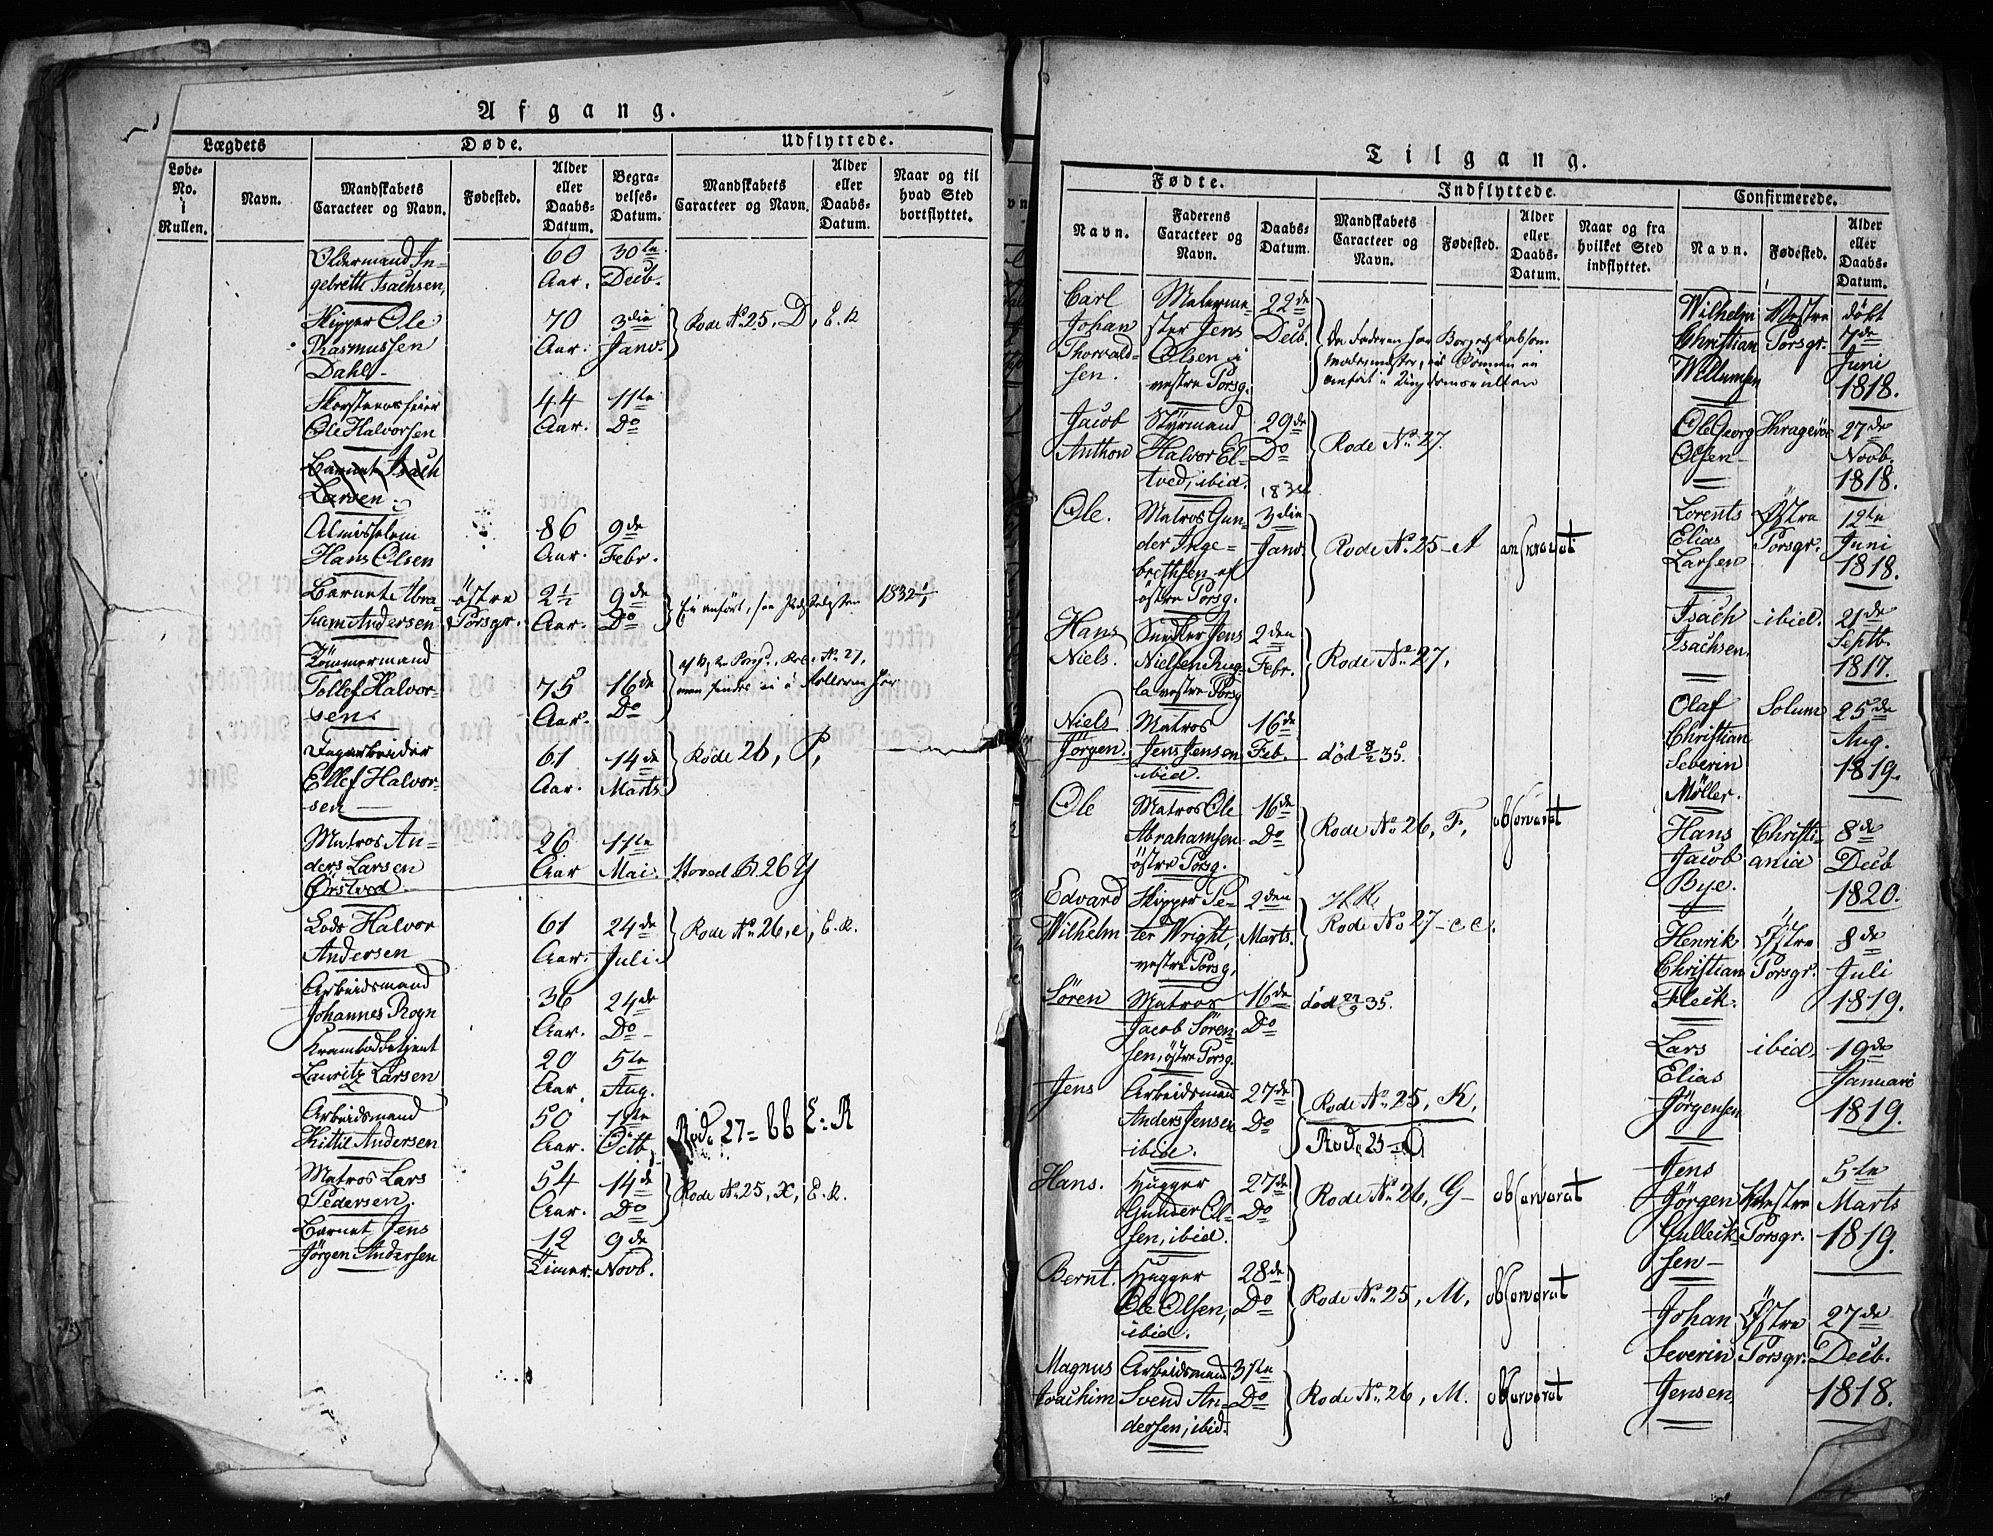 Afgang.
Lægdets
Døde.
Udflyttede.
Løbe-No. i Rullen.
Navn.
Mandskabets Caracteer og Navn.
Fødested.
Alder eller Daabs-Datum.
Begravelses-Datum.
Mandskabets Caracteer og Navn.
Alder eller Daabs-Datum.
Naar og til hvad Sted bortflyttet.
Oldermand In- 60 30te
gebrett Isachsen, Aar. Decb.
Skipper Ole 70 3die Rode No. 25, D, E. R
Rasmussen Aar. Janv.
Dahl
Skorstensfeier 44 11te
Ole Halvorsen Aar. Do
Barnet Isach
Larsen
Almisselem 86 9de
Hans Olsen Aar. Febr.
Barnet Abra- østre 2½ 9de 1832
ham Andersen Porsgr. Aar. Do
Tömmermand
Tollef Halvor- 75 16de
sen. Aar. Do
Dagarbeider 61 14de Rode 26, P,
Ellef Halvor- Aar. Marts
sen
Matros An- 26 11te
ders Larsen Aar Mai. Hoved R. 26 Y
Ørstved
Lods Halvor 61 24de Rode No. 26, e, E. R.
Andersen Aar. Juli.
Arbeidsmand 36 24de
Johannes Rogn Aar. Do
Kramboddetjent 20 5te
Lauritz Larsen Aar. Aug.
Arbeidsmand 50 1ste Rode 27= bb E: R
Kittil Andersen Aar. Octb.
Matros Lars 54 14de Rode No. 25, X, E. R.
Pedersen. Aar. Do
Barnet Jens 12 9de
Jörgen Andersen Timer. Novb.
Tilgang.
Fødte.
Indflyttede.
Confirmerede.
Navn.
Faderens Caracteer og Navn.
Daabs-Datum.
Mandskabets Caracteer og Navn.
Fødested.
Alder eller Daabs-Datum.
Naar og fra hvilket Sted indflyttet.
Navn.
Fødested.
Alder eller Daabs-Datum.
Carl Malerme- 22de
Johan ster Jens Decb.
Thorvald- Olsen i
sen. vestre Porsg.
Jacob Styrmand 29de Rode No. 27.
Anthon Halvor El- Do
tved, ibid.
Ole. Matros Gun- 3die Rode No. 25-A
der Inge- Janv.
brethsen af
østre Porsg.
Hans Snedker Jens 2den Rode No. 27,
Niels. Nielsen Rug- Febr.
la vestre Porsg
Niels Matros 16de
Jörgen. Jens Jensen Feb. död 8/2 35.
ibid.
Ole Matros Ole 16de Rode No. 26, F, observerat
Abrahamsen Do
østre Porsg.
Edvard Skipper Pe- 2den
Wilhelm ter Wright, Marts. Rode No 27-cc.
vestre Porsg,
Sören Matros 16de död 35.
Jacob Sören- Do
sen, østre Porsg.
Jens Arbeidsmand 27de Rode No. 25, K,
Anders Jensen Do
ibid. Rode 25-O
Hans. Hugger 27de Rode No. 26, G- observerat
Gunder Ol- Do
sen, ibid.
Bernt. Hugger 28de Rode No. 25, M, observerat
Ole Olsen, Do
ibid.
Magnus Arbeidsmand 31te
Joachim Svend An- Do Rode No. 26, M. observerat
dersen, ibid.
Wilhelm Vestre døbt
Christian Porsgr. 7de
Willumsen Juni
1818.
Ole Georg Kragerøe 27de
Olsen Novb.
1818.
Lorents Østre 12te
Elias Porsgr. Juni
Larsen 1818.
Isach ibid. 21de
Isachsen. Septb.
1817.
Olaf Solum 25de
Christian Aug.
Severin 1819.
Møller.
Hans Christi- 8de
Jacob ania Decb
Bye. 1820.
Henrik Østre 8de
Christian Porsgr. Juli
Fleck. 1819.
Lars ibid. 19de
Elias Januari
Jörgensen 1819.
Jens 5te
Jörgen Vestre Marts
Gulleck- Porsgr. 1819.
sen
Johan Østre 27de
Severin Porsgr. Decb.
Jensen. 1818.